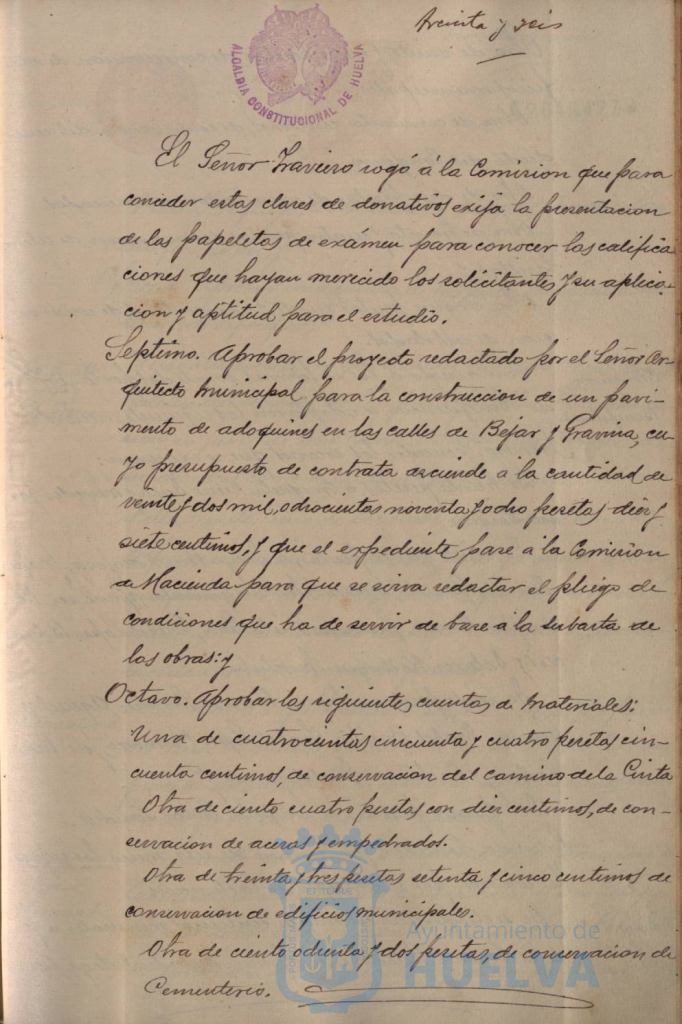 Treinta y seis
ALCALDIA CONSTITUCIONAL DE HUELVA
El Señor Traviero rogó á la Comision que para
conceder estas clares de donativos exija la presentacion
de las papeletas de exámen para conocer las califica
ciones que hayan merecido los solicitantes y su aplica-
cion y aptitud para el estudio.
Septimo. Aprobar el proyecto redactado por el Señor Ar-
quitecto Municipal para la construccion de un pavi-
mento de adoquines en las calles de Bejar y Gravina, cu-
yo presupuesto de contrata asciende á la cantidad de
veinte y dos mil, ochocientas noventa y ocho pesetas diez y
siete centimos, y que el expediente pase á la Comision
de Hacienda para que se sirva redactar el pliego de
condiciones que ha de servir de base á la subasta de
las obras: y
Octavo. Aprobar las siguientes cuentas de materiales:
Una de cuatrocientas cincuenta y cuatro pesetas cin-
cuenta centimos, de conservacion del camino de la Cinta
Otra de ciento cuatro pesetas con diez centimos, de con-
servacion de aceras y empedrados.
Otra de treinta y tres pesetas setenta y cinco centimos de
conservacion de edificios municipales.
Otra de ciento ochenta y dos pesetas, de conservacion de
Cementerio.
Ayuntamiento de
HUELVA